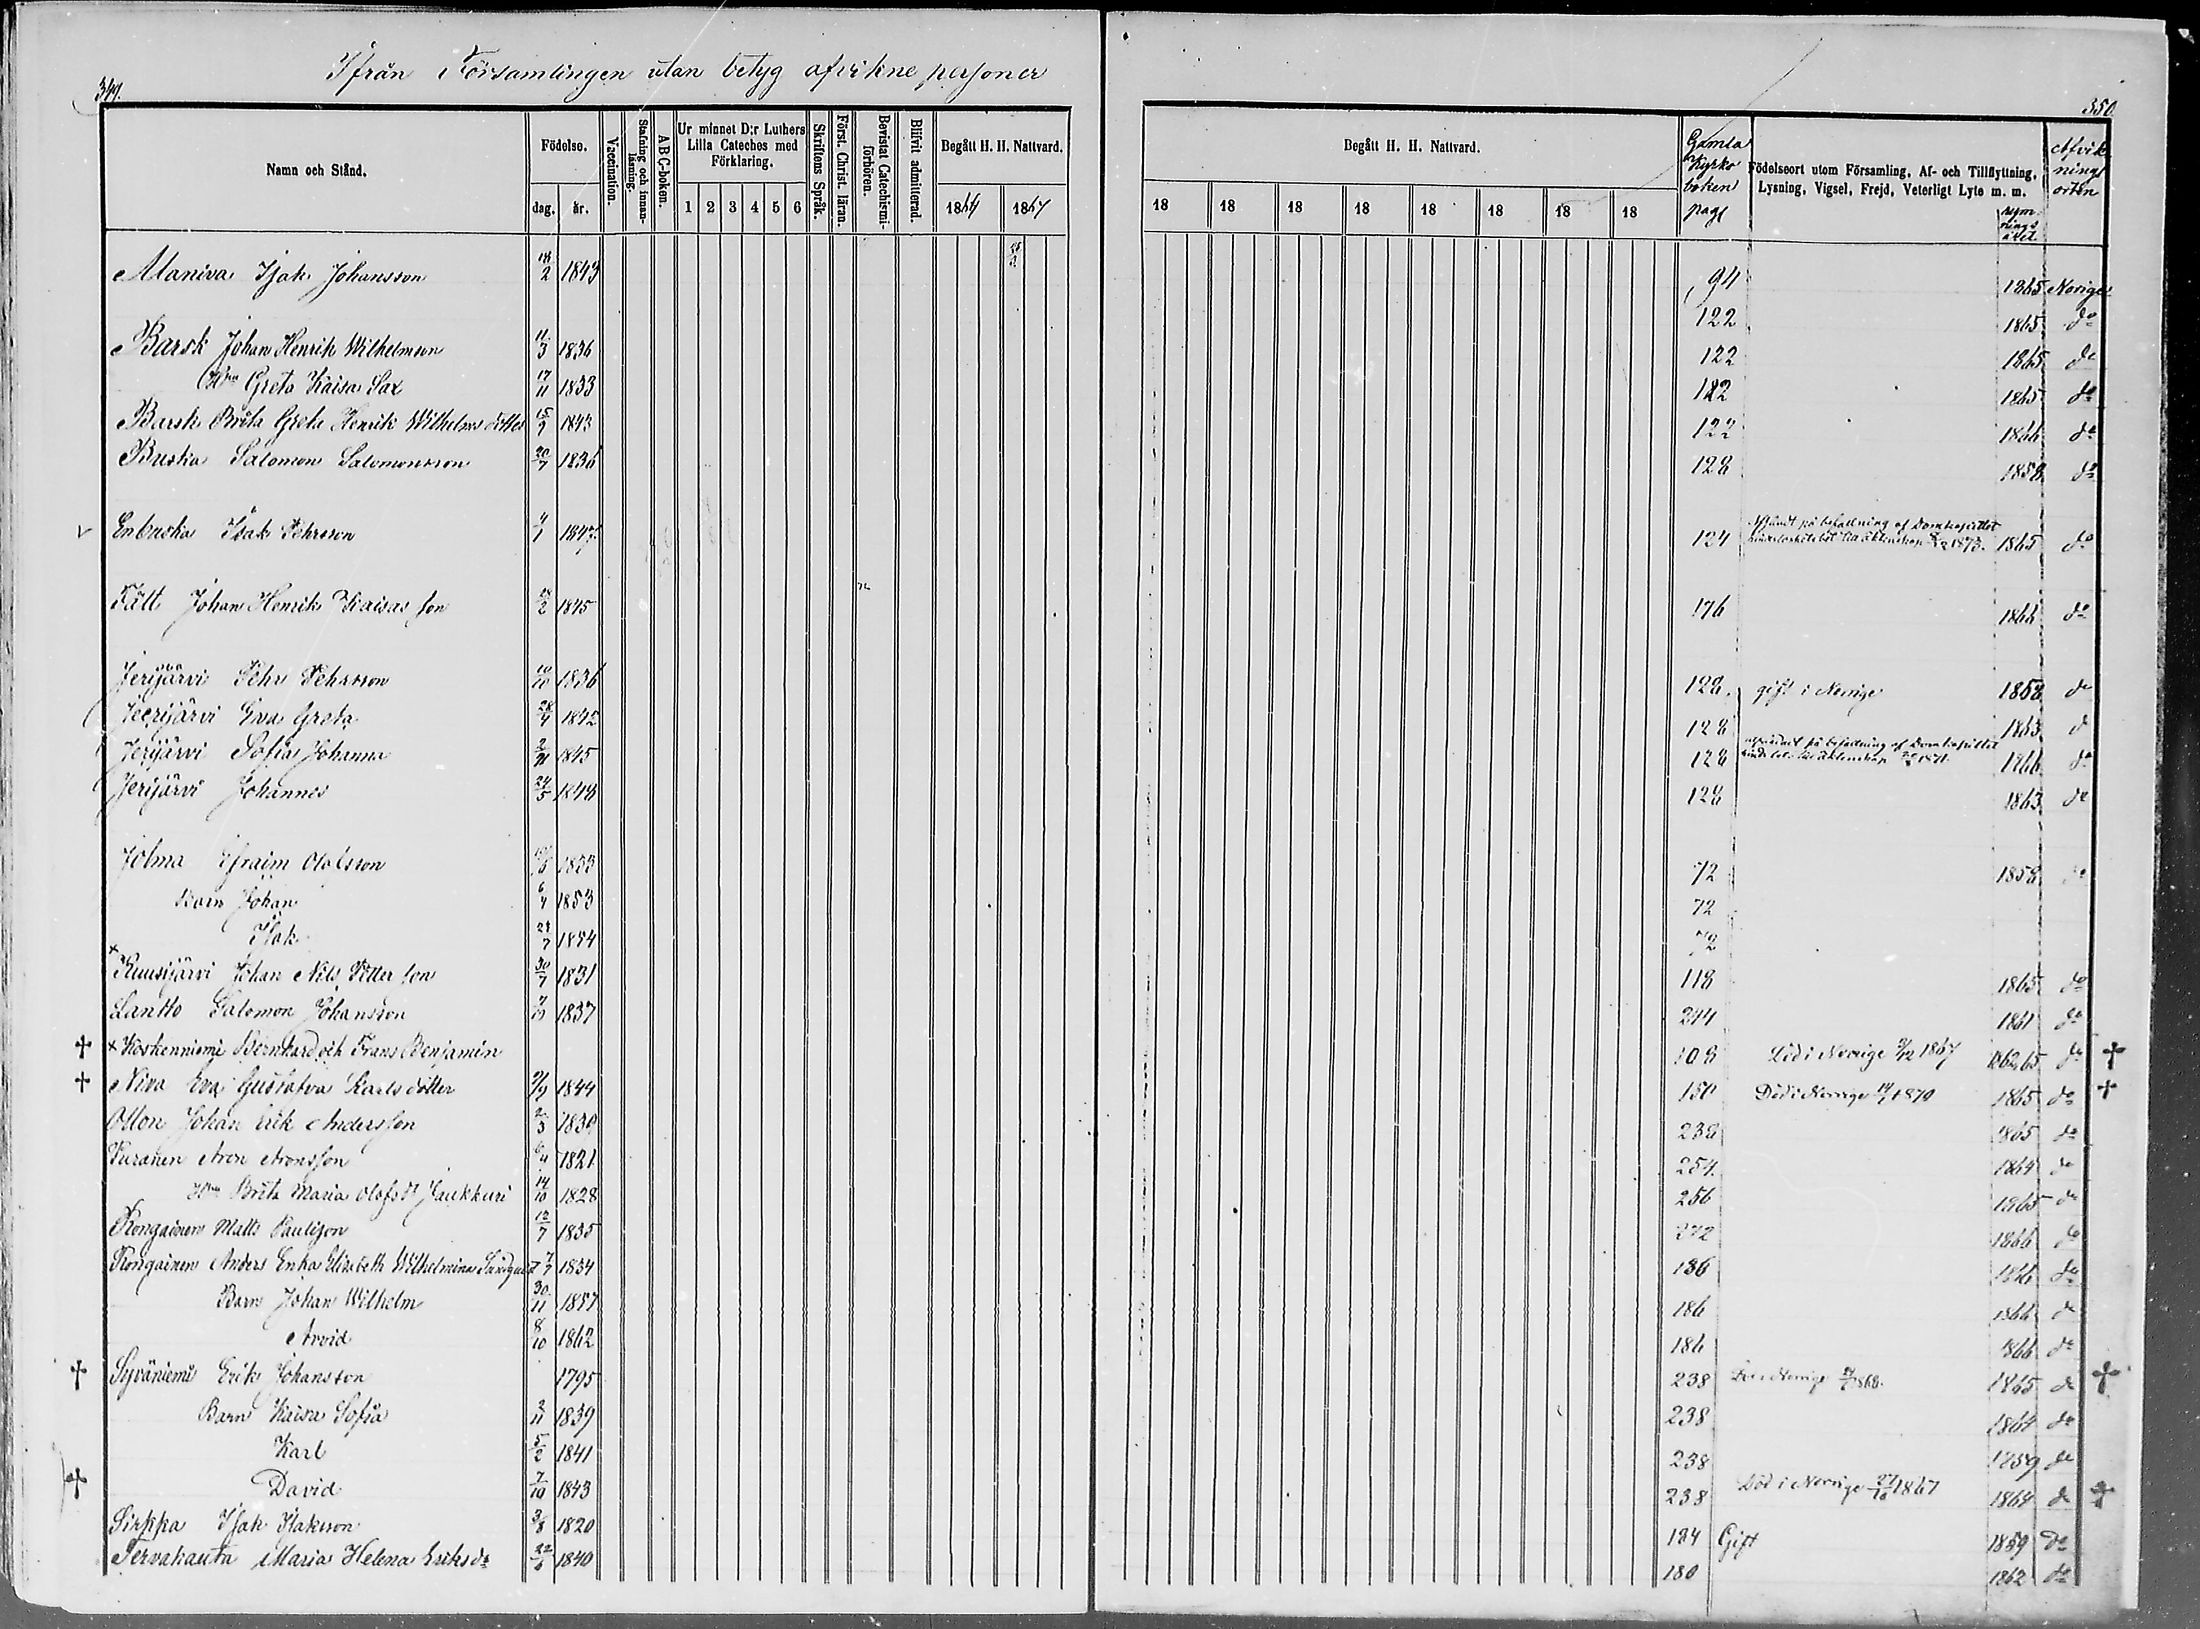 Ifrån Församlingen utan betyg afvikne personer
349.
350
Namn och Stånd.
Födelse.
dag. år.
Vaccination.
Stafning och innanläsning.
A B C-boken.
Ur minnet D:r Luthers Lilla Cateches med Förklaring.
1 2 3 4 5 6
Skriftens Språk.
Först. Christ. läran.
Bevistat Catechismi-förhören.
Blifvit admitterad.
Begått H. H. Nattvard.
1867
Begått H. H. Nattvard.
18 18 18 18 18 18 18 18
Gamla Kyrko boken pag
Födelseort utom Församling, Af- och Tillflyttning, Lysning, Vigsel, Frejd, Veterligt Lyte m. m.
rymnings året
Afvik nings orten
Alaniva Isak Johansson 2 1843 94 1865 Norige
122 1865 do
Barsk Johan Henrik Wilhelmson 11/3 1836 122 1865 do
Hu Greta Kaisa Sax 17/11 1833 122 1865 do
Barsk Brita Greta Henrik Wilhelms dotter 15/7 1843 122 1866 do
Buska Salomon Salomonsson 20/7 1836 128 1858 do
Enbuska Isak Pehrsson 4/1 1847 124 Afflandt på befallning af Domkapitlet till äktenskap 1873. 1865 do
Fält Johan Henrik Kaisas son 2 1845 176 1866 do
Jerijärvi Pehr Pehrsson 10 1836 128. gift i Norrige 1858 do
Jeerijärvi Eva Greta 28/4 1842 128 1863 d
Jerijärvi Sofia Johanna 2/11 1845 128 på befallning af Domkapitlet till äktenskap 1871. 1866 do
Jerijärvi Johannes 24/5 1848 128 1863 do
Jolma Efraim Olofsson 1833 72 1858 do
Barn Johan 6/4 1853 72
Isak 7 1854 72
× Ruusijärvi Johan Nils Petter son 30/7 1831 118 1865 do
Lantto Salomon Johansson 1837 244 1861 do
✝ × Koskenniemi Bernhard och Frans Benjamin 108 Död i Norrige 9/12 1867 1862,65 do ✝
✝ Niva Eva Gustafva Karls dotter 9/9 1844 150 Död i Norrige 14/1 1870 1865 do ✝
Otton Johan Erik Andersson 2/3 1839 238 1865 do
Puranen Aron Aronsson 6/4 1821 254 1864 do
Hu Brita Maria Olofs Dr Jaukkuri 14/10 1828 256 1865 do
Rongainen Matts Paulsson 12/7 1835 272 1866 do
Rongainen Anders Enka Elisabeth Wilhelmina Sundqvist 7/7 1834 186 1866 do
Barn Johan Wilhelm 30/11 1857 186 1866 do
Arvid 8/10 1862 186 1866 do
✝ Syväniemi Erik Johansson 1795 238 Död i Norrige 1868. 1865 do ✝
Barn Kaisa Sofia 2/11 1839 238 1864 do
Karl 5/2 1841 238 1859 do
✝ David 7/10 1843 238 Död i Norrige 27/10 1867 1864 do ✝
Sirkka Isak Isaksson 3/8 1820 184 Gift 1859 do
Tervahauta Maria Helena Eriksdr 22/6 1840 180 1862 do